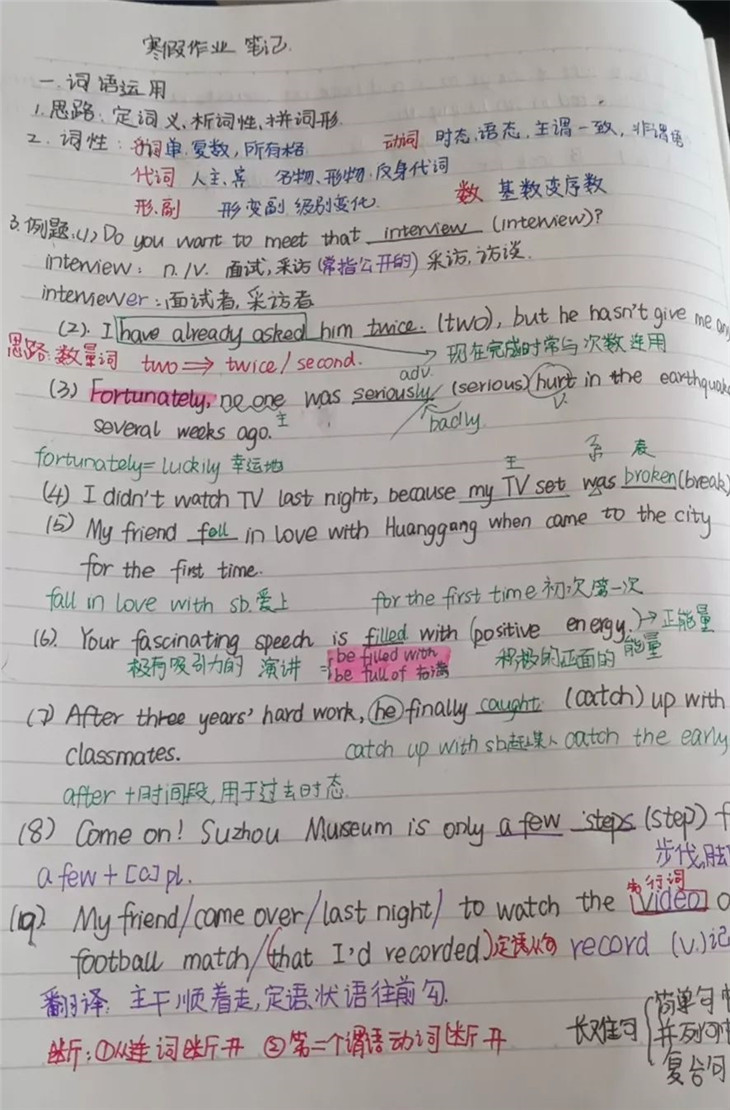 寒假作业 笔记.
一.词语运用
1.思路: 定词义,析词性,拼词形.
2.词性: 名词 单.复数, 所有格 动词 时态,语态,主谓一致, 非谓语
代词 人主、宾 名物、形物、反身代词
形.副 形变副 级别变化. 数 基数变序数
3.例题:(1) Do you want to meet that interview (interview)?
interview: n./v. 面试,采访(常指公开的)采访,访谈.
interviewer: 面试者,采访者
(2). I have already asked him twice. (two), but he hasn't give me
思路:数量词 two⇒twice/second. 现在完成时常与次数连用
adv.
(3) Fortunately, no one was seriously (serious) hurt in the earthquake
several weeks ago. 主 badly v.
fortunately=luckily 幸运地 主 系 表
(4) I didn't watch TV last night, because my TV set was broken(break)
(5) My friend fell in love with Huanggang when came to the city
for the first time.
fall in love with sb.爱上 for the first time 初次第一次
(6). Your fascinating speech is filled with (positive energy.)→正能量
极有吸引力的 演讲 ={be filled with 积极的正面的 能量
be full of 充满
(7) After three years' hard work, he finally caught (catch) up with
classmates. catch up with sb赶上某人 catch the early
after+时间段,用于过去时态.
(8) Come on! Suzhou Museum is only a few steps (step)
a few+[C]pl. 步伐,
先行词
(19). My friend/came over/last night/ to watch the video
football match/(that I'd recorded)定语从句 record (v.)
翻译: 主干顺着走,定语.状语往前勾.
断:①从连词断开 ②第二个谓语动词断开 长难句{简单句
并列句
复合句